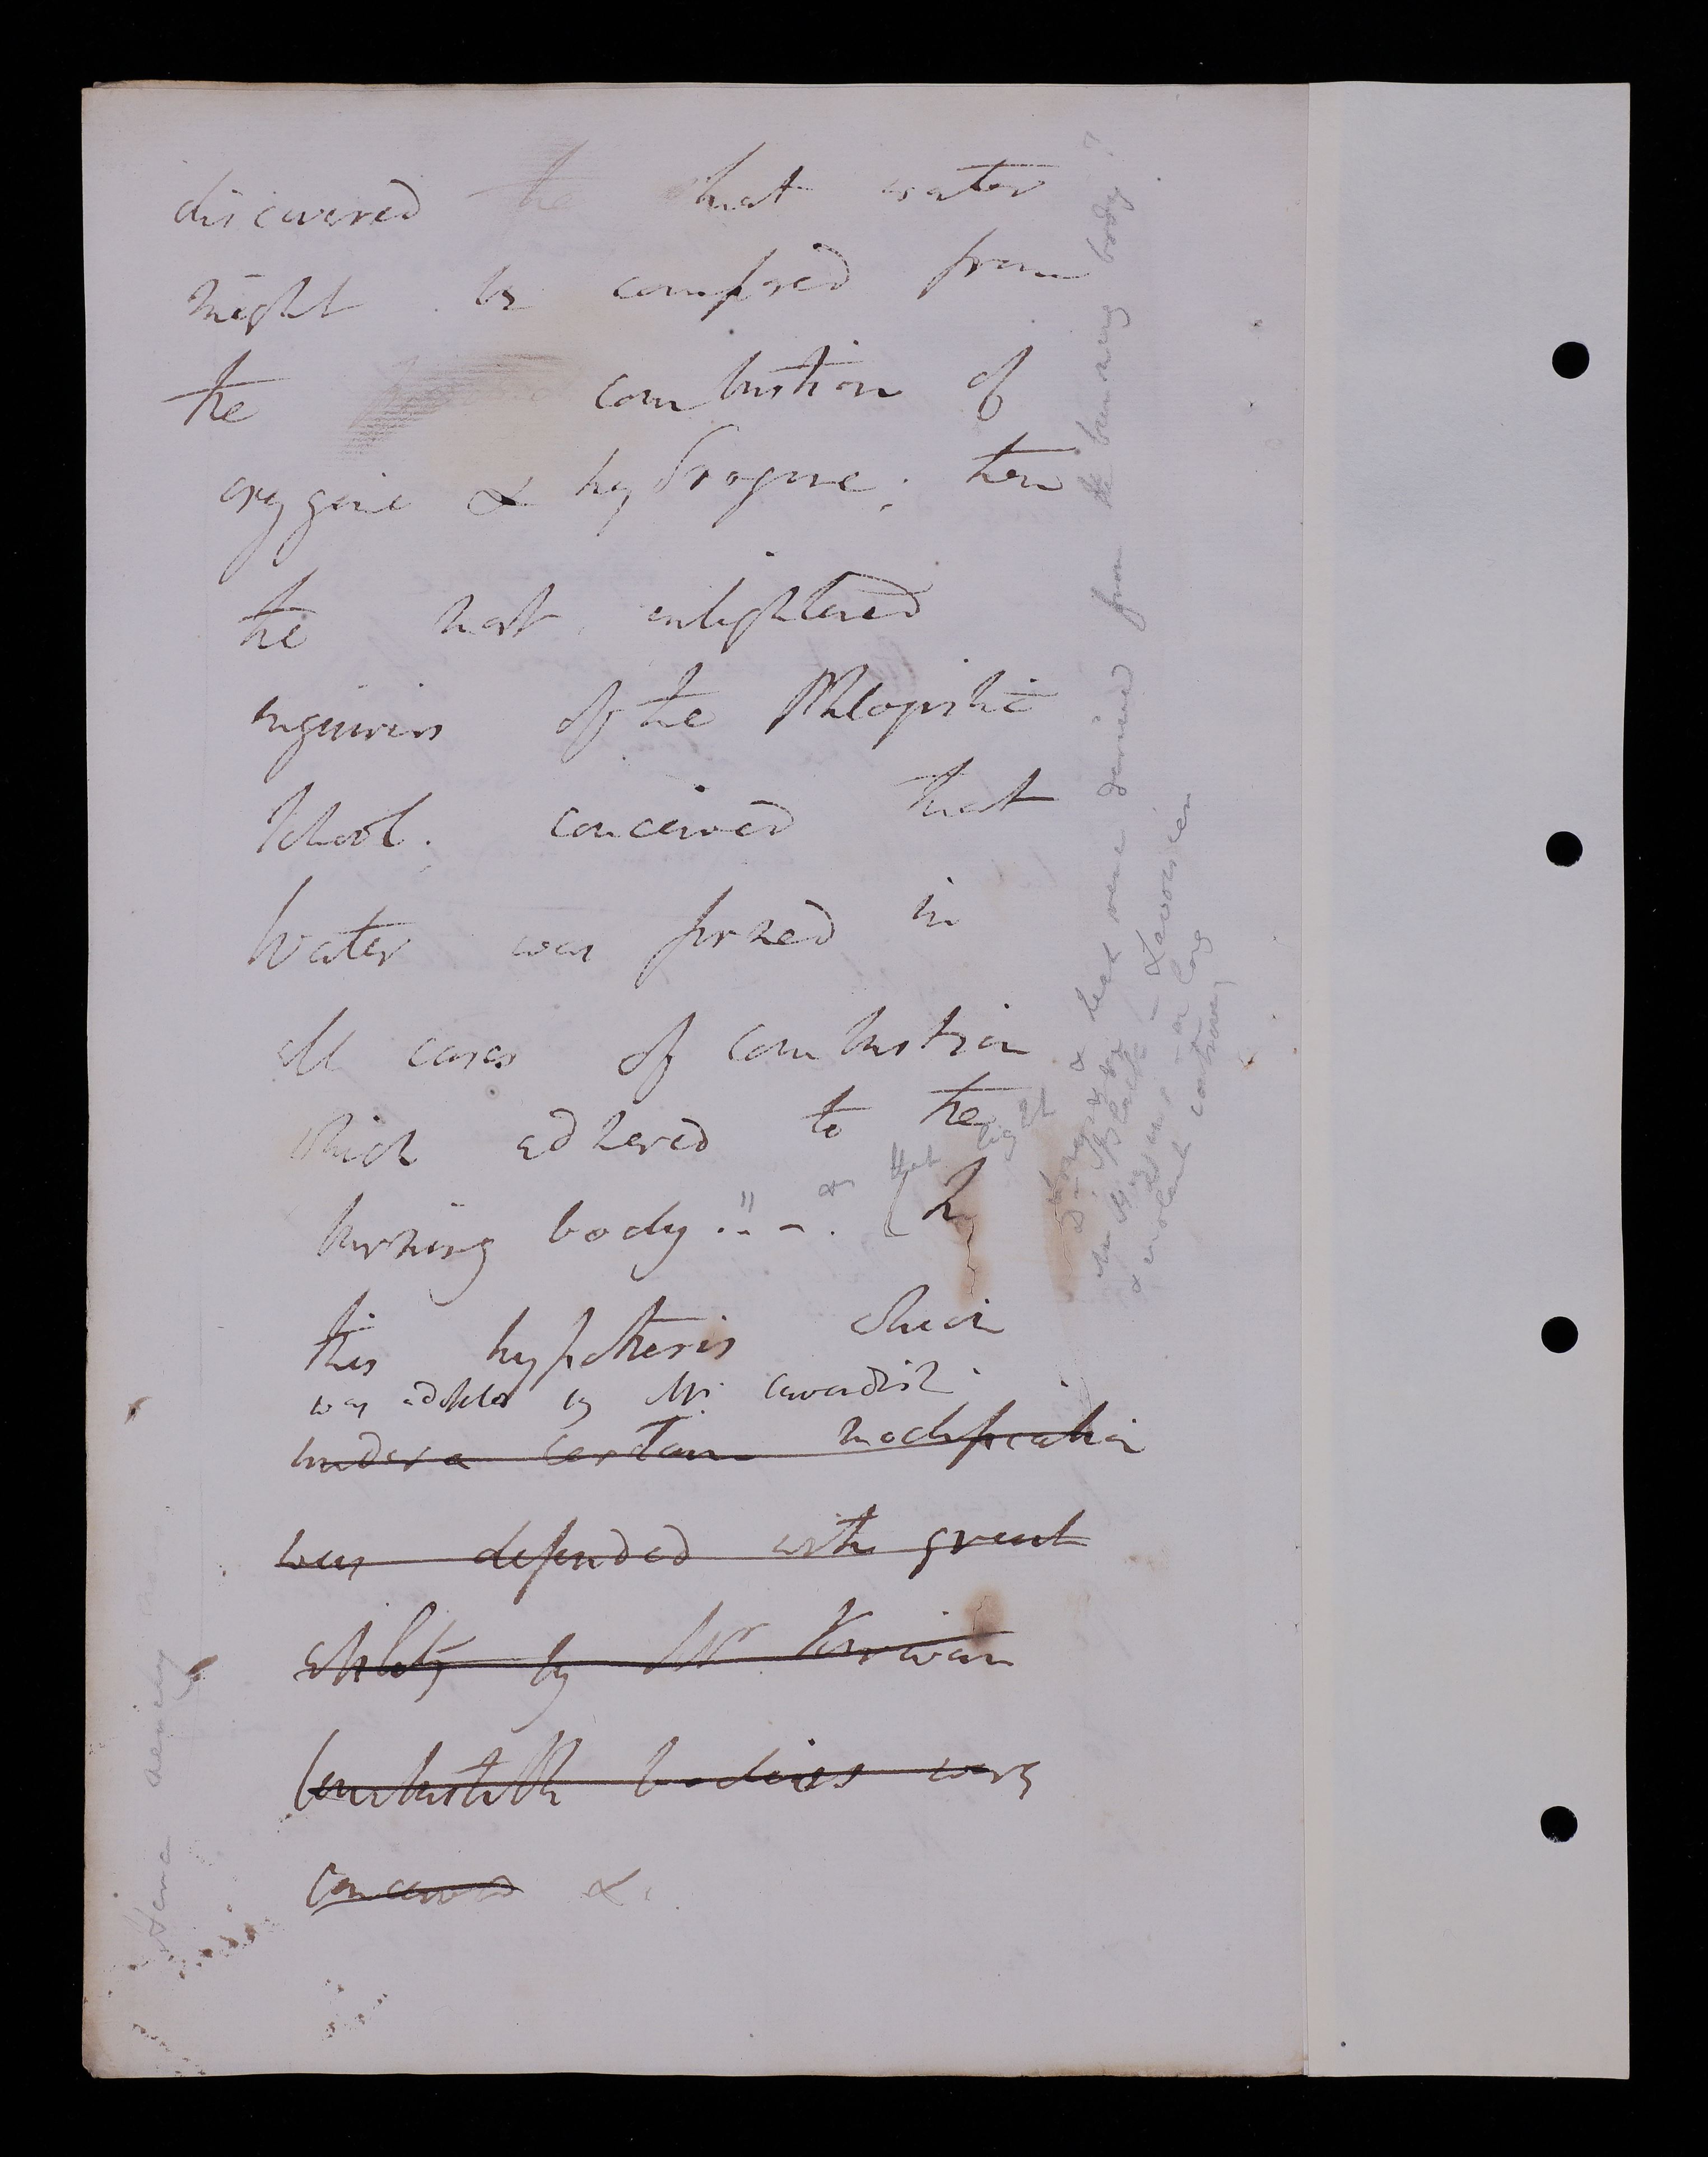 discovered the that water
might be composed from
the combustion of
oxygene & hydrogene; then
the most enlightened
enquirers of the Phlogistic
School. conceived that
Water was formed in
all cases of combustion
which adhered to the
burning body." - . &
that light
this hypothesis which
was adopted by Mr. Cavendish.
under a certain modification
was defended with great
ability by Mr Kirwan
Combustible bodies were
conceived &.
& heat were derived from the burning body?
Lavoisier
long
contrary
Hence